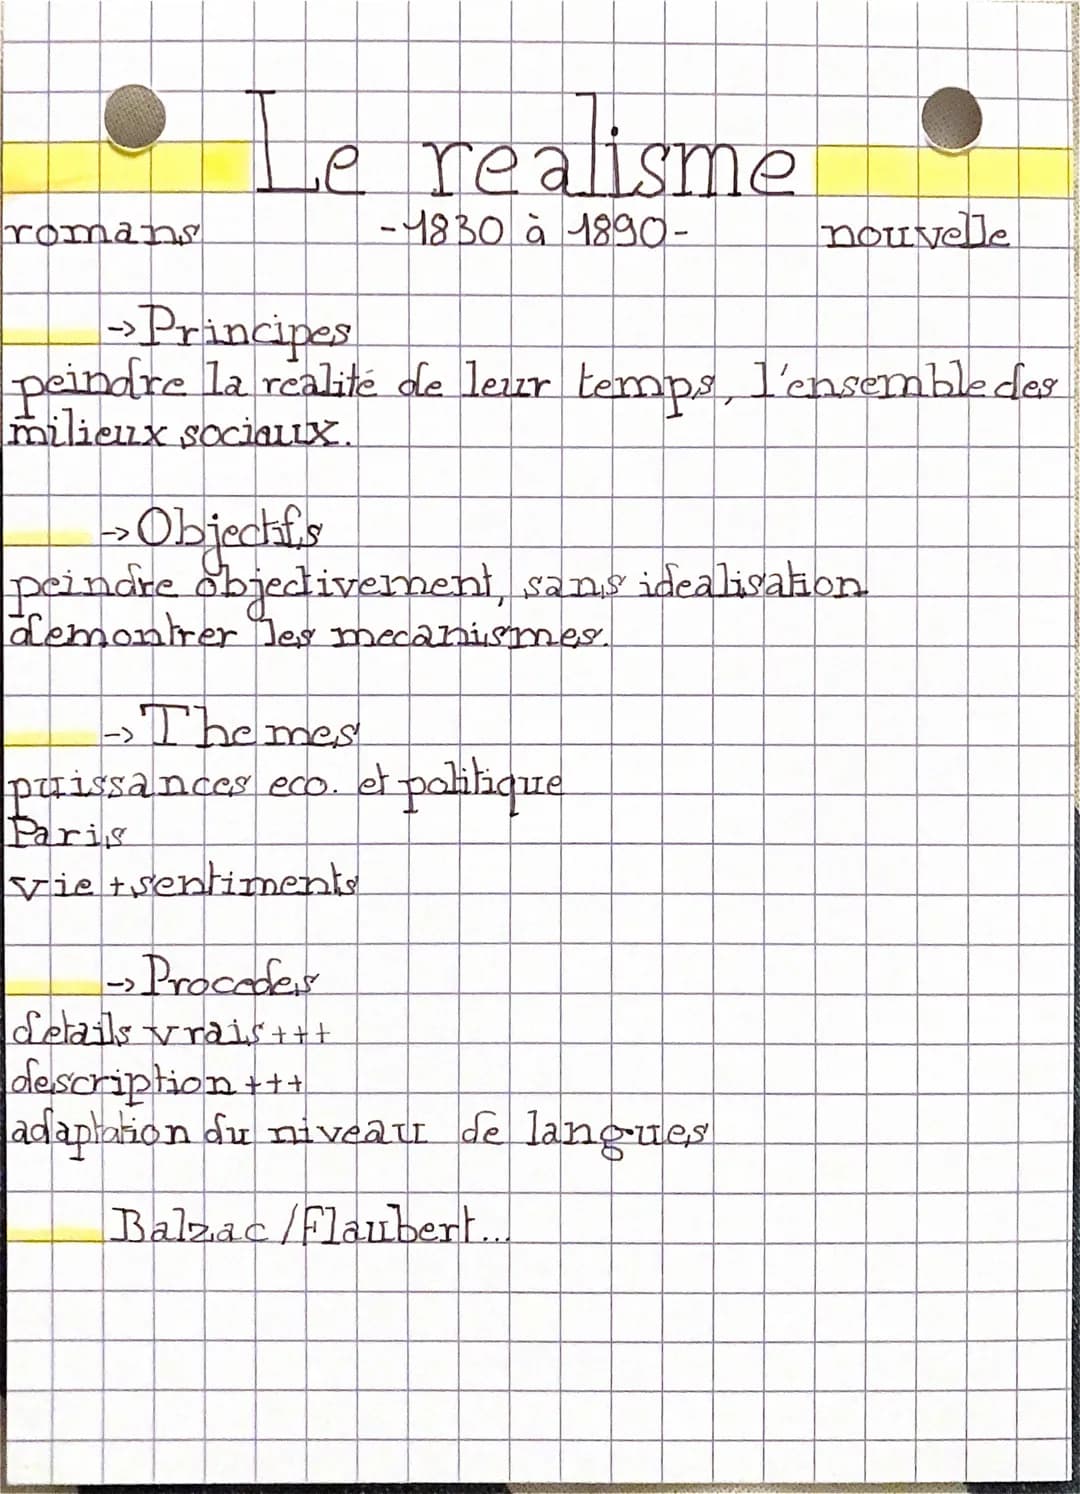 Le realisme
romans -1830 à 1890- nouvelle
-> Principes
peindre la réalité de leur temps, l'ensemble des
milieux sociaux.
-> Objectifs
peindre objectivement, sans idealisation
demontrer les mecanismes.
-> Themes
puissances eco. et politique
Paris
vie + sentiments
-> Procedes
details vrais +++
description +++
adaptation du niveau de langues
Balzac / Flaubert...